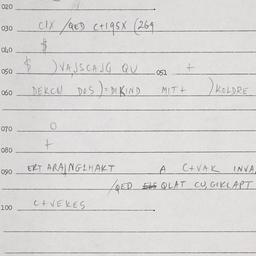 020
030 CIX /QED C+195X (269
040 $
050 $ )VAJSCAJG QU 051 +
060 DEKCN DOS )=DIKIND MIT+ )KOLDRE
070 O
080 +
090 EKT ARAJNGLHAKT A C+VAK INVA
/QED QLAT CU,GIKLAPT
100 C+VEKES